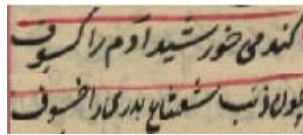 کندمی خورشید آدم را کسوف
چون ذنب شعشاع بدری را خسوف